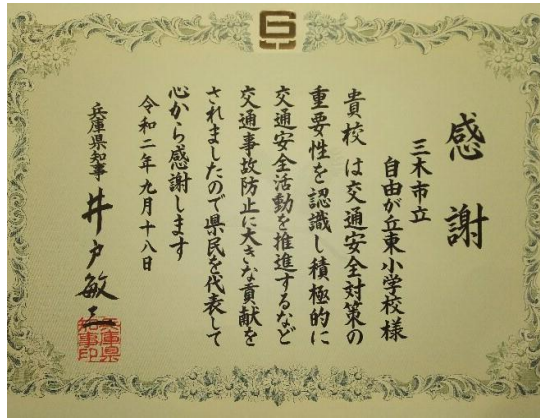 感謝
三木市立
自由が丘東小学校様
貴校は交通安全対策の
重要性を認識し積極的に
交通安全活動を推進するなど
交通事故防止に大きな貢献を
されましたので県民を代表して
心から感謝します
令和二年九月十八日
兵庫県知事 井戸敏三
兵庫県
知事印